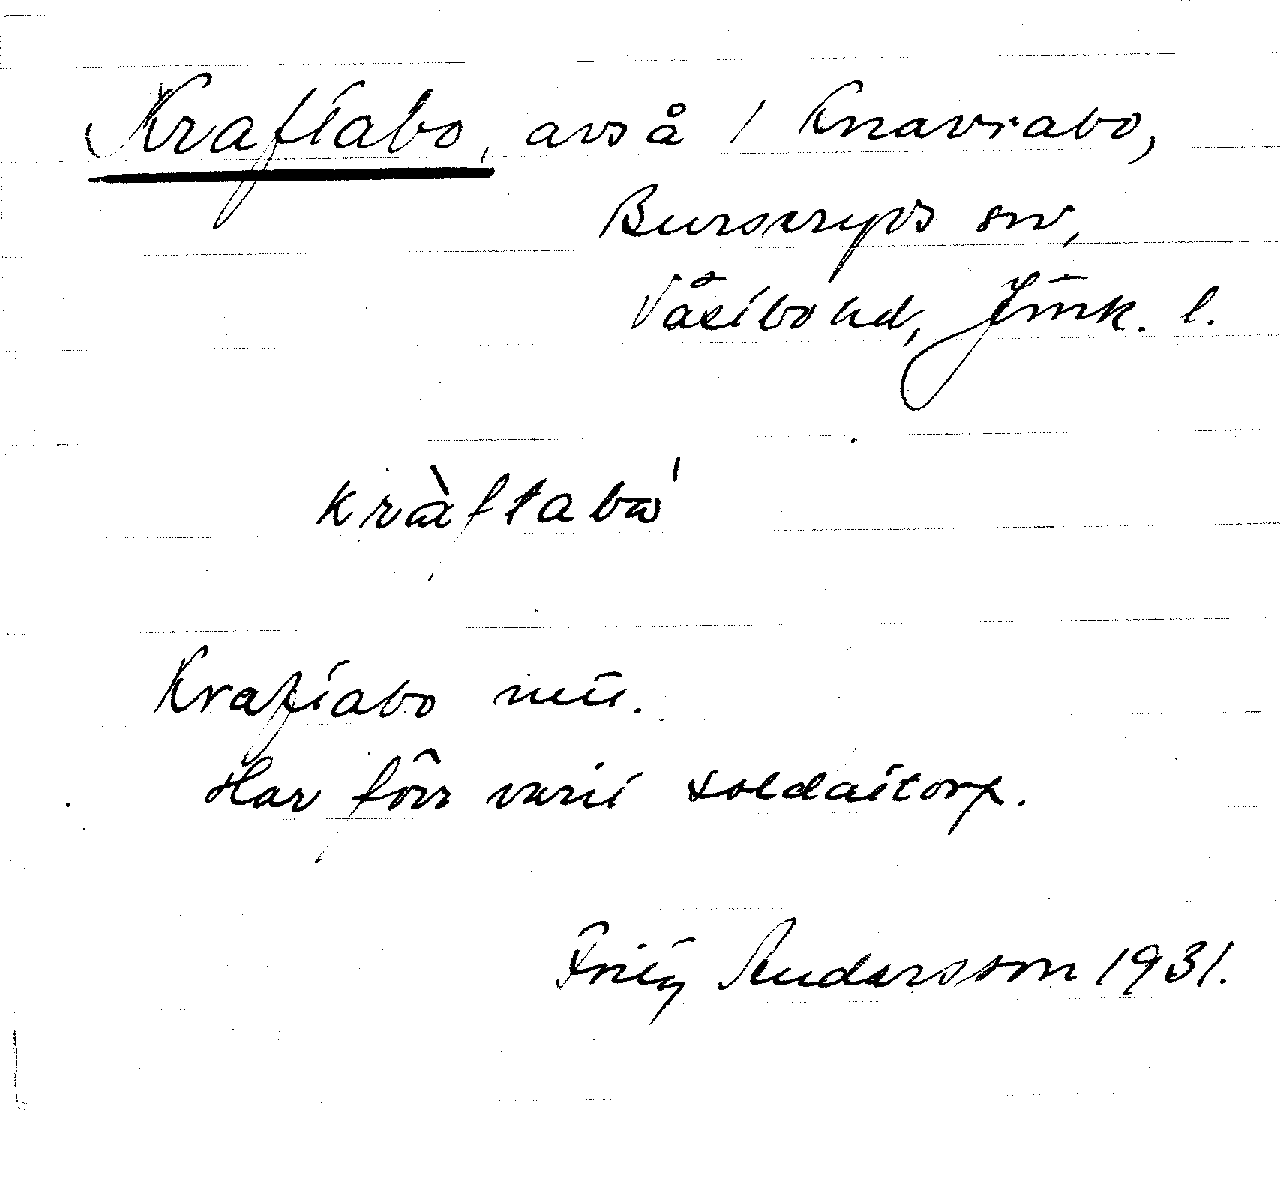 Kraftabo, avs å 1 Knavrabo,
Burseryds sn,
Västbo hd, Jönk. l.
kràftabω'
Kraftabo mtl.
Har förr varit soldattorp.
Fritz Andersson 1931.